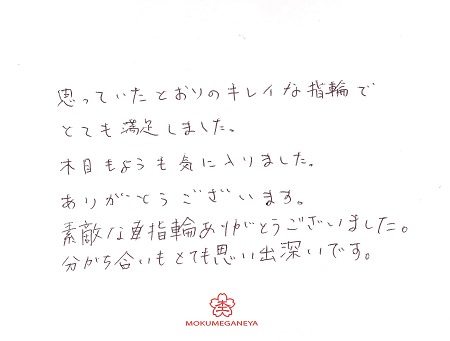 思っていたとおりのキレイな指輪で
とても満足しました。
木目もようも気に入りました。
ありがとうございます。
素敵な指輪ありがとうございました。
分かち合いもとても思い出深いです。
MOKUMEGANEYA